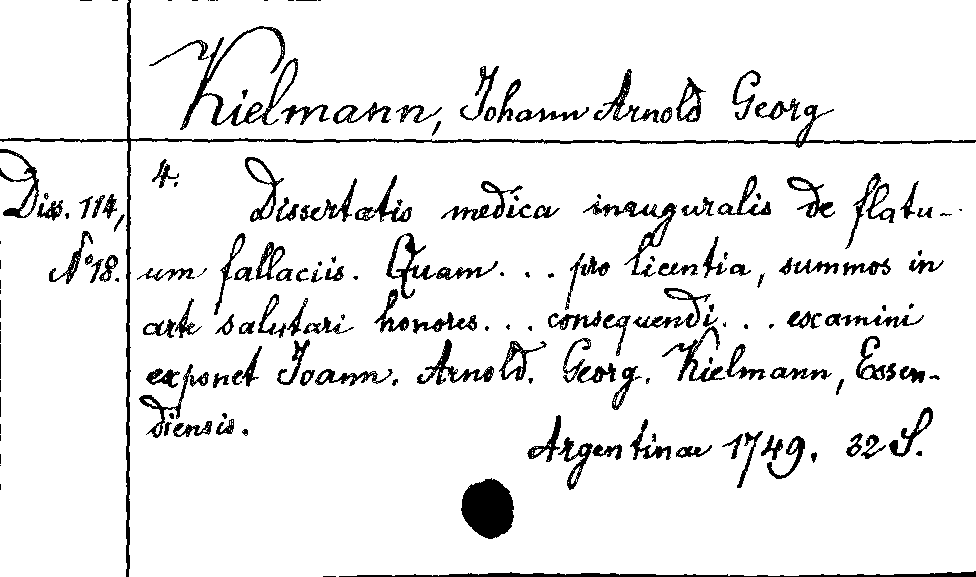 Kielmann, Johann Arnold Georg
4.
Diss. 114,
N° 18.
Dissertatio medica inauguralis de flatu-
um fallaciis. Quam . . . pro licentia, summos in
arte salutari honores . . . consequendi . . . examini
exponet Joann. Arnold. Georg. Kielmann, Essen-
diensis.
Argentinae 1749. 32 S.